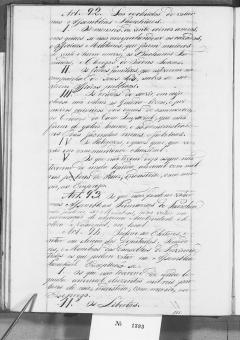 Art. 92. São excluidos de votar nas
Assembléas Parochiaes.
I. Os menores de vinte e cinco annos,
nos quaes se não comprehendem os casados,
e Officiaes Militares, que forem maiores
de vinte e um annos, os Bachareis For
mados, e Clerigos de Ordens Sacras.
II. Os filhos familias, que estiverem na
companhia de seus pais, salvo se servirem
Officios publicos.
III. Os criados de servir, em cuja
classe não entrão os Guarda livros, e pri
meiros caixeiros das casas de commercio,
os Criados da Casa Imperial, que não
forem de galão branco, e os administradores
das fazendas ruraes, e fabricas.
IV. Os Religiosos, e quaesquer, que vi
vão em Communidade claustral.
V. Os que não tiverem de renda
liquida annual cem mil
réis por bens de raiz, industria, commer
cio, ou Empregos.
Art. 93. Os que não podem votar
nas Assembléas Primarias de Parochia,
não podem ser Membros, nem votar na
nomeação de alguma Autoridade electiva
Nacional, ou local.
Art. 94. Podem ser Eleitores, e
votar na eleição dos Deputados, Senado
res, e Membros dos Conselhos de Provincia
todos, os que podem votar na Assembléa
Parochial. Exceptuão-se
I. Os que não tiverem de renda li
quida annual duzentos mil réis por
bens de raiz, industria, commercio, ou
emprego.
II. Os Libertos.
III